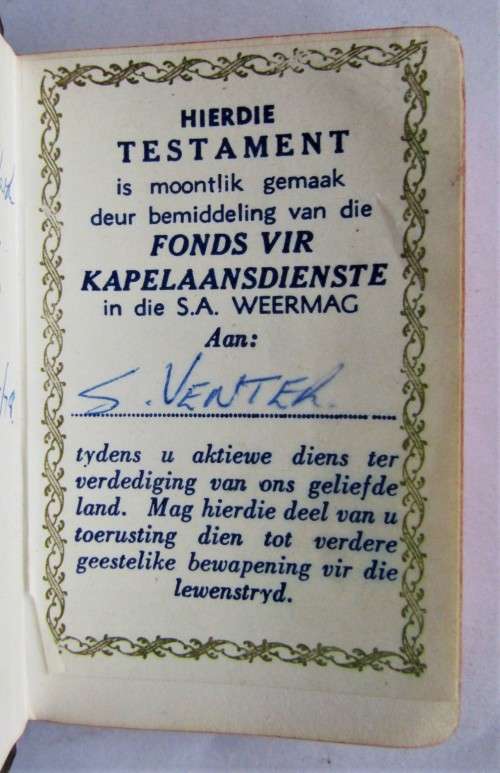 HIERDIE
TESTAMENT
is moontlik gemaak
deur bemiddeling van die
FONDS VIR
KAPELAANSDIENSTE
in die S.A. WEERMAG
Aan:
S. VENTER
tydens u aktiewe diens ter
verdediging van ons geliefde
land. Mag hierdie deel van u
toerusting dien tot verdere
geestelike bewapening vir die
lewenstryd.